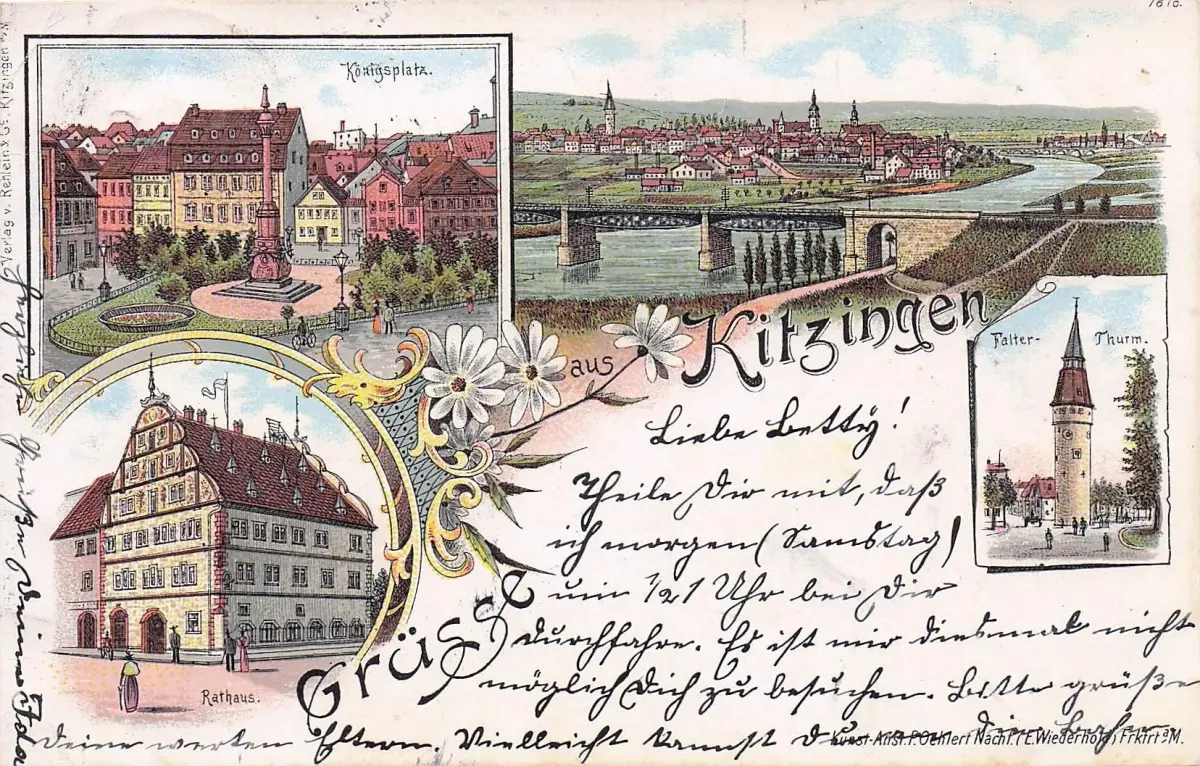 1810.
Königsplatz.
Verlag v. Rehlein & Co. Kitzingen a/M.
aus Kitzingen
Falter- Thurm.
Rathaus.
Grüsse
Liebe Betty!
Theile Dir mit, daß
ich morgen (Samstag)
um 1/21 Uhr bei Dir
durchfahre. Es ist mir diesmal nicht
möglich Dich zu besuchen. Bitte grüße
Deine werten Eltern. Vielleicht kannst Du
Deine Ida
Kunst-Anst. P. Oehlert Nachf. (E. Wiederhold) Frkfrt a/M.